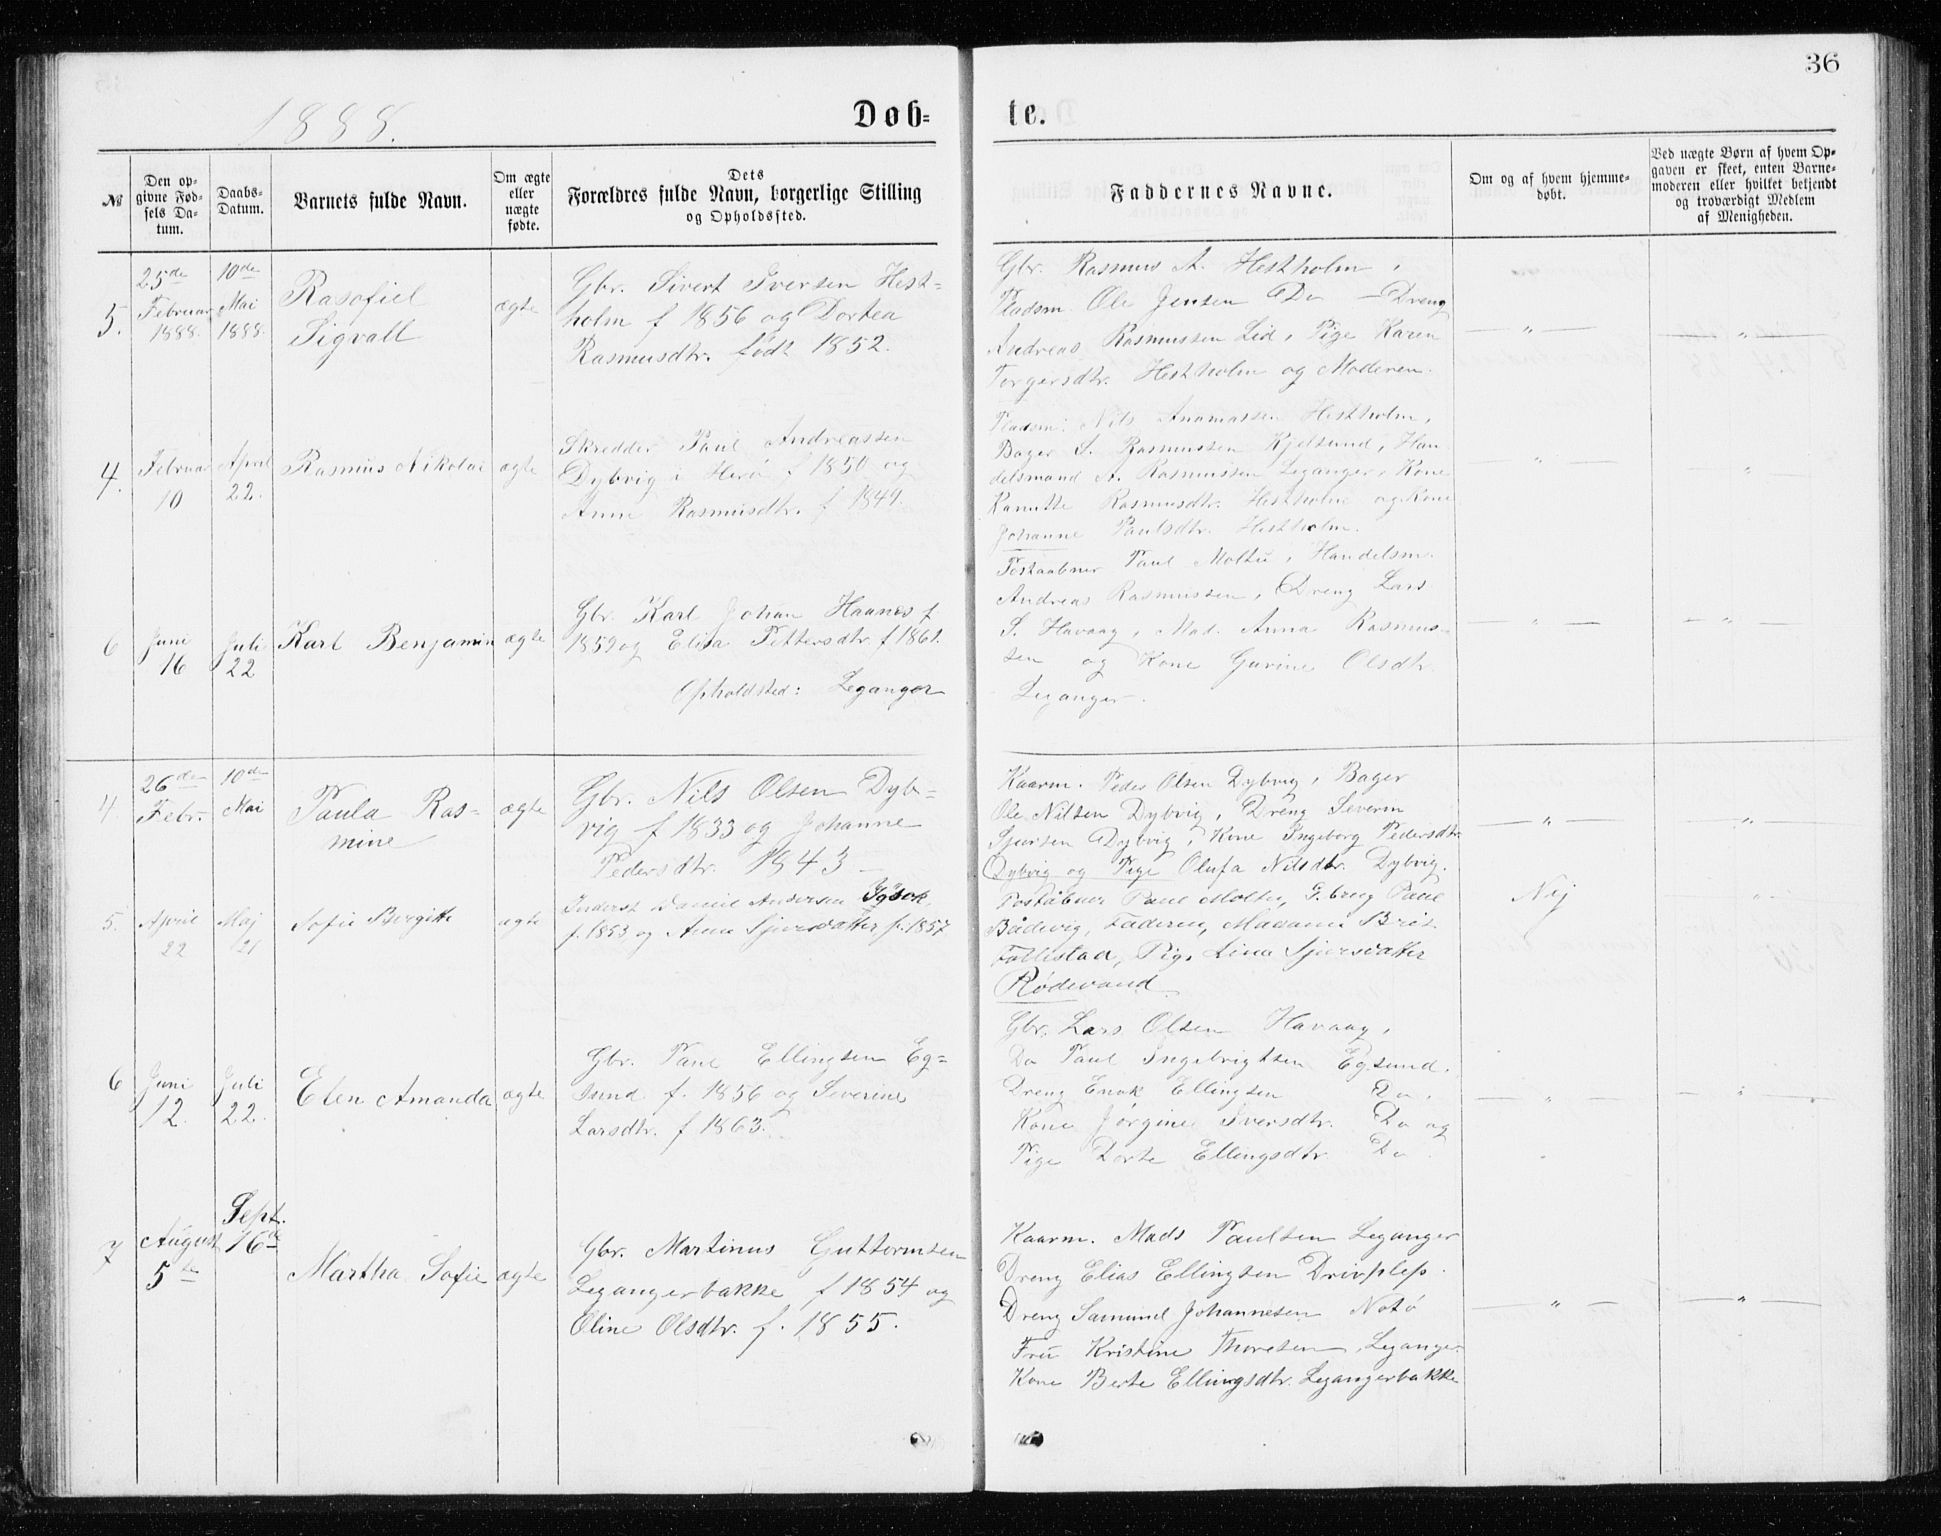 36
1888.
Døb=
te.
№
Den op-
givne Fød-
sels Da-
tum.
Daabs-
Datum.
Barnets fulde Navn.
Om ægte
eller
uægte
fødte.
Dets
Forældres fulde Navn, borgerlige Stilling
og Opholdssted.
Faddernes Navne.
Om og af hvem hjemme-
døbt.
Ved uægte Børn af hvem Op-
gaven er skeet, enten Barne-
moderen eller hvilket bekjendt
og troværdigt Medlem
af Menigheden.
5.
25de
Februar
1888.
10de
Mai
1888.
Rasofiel
Sigvall
ægte
Gbr. Sivert Iversen Hest=
holm f 1856 og Dortea
Rasmusdtr. født 1852.
Gbr. Rasmus A. Hestholm,
Pladsm. Ole Jensen Do - Dreng
Andreas Rasmussen Lid, Pige Karen
Torgersdtr. Hestholm og Moderen.
— " —
— " —
4.
Februar
10
April
22.
Rasmus Nikolai
ægte
Skredder Paul Andreassen
Dybvig i Herö f 1850 og
Anne Rasmusdtr. f 1849.
Pladsm: Nils Hestholm,
Bager S. Rasmussen Kjelsund, Han
delsmand A. Rasmussen Leganger, Kone
Rasmusdtr. Hestholm og Kone
Johanne Paulsdtr. Hestholm.
— " —
"
6
Juni
16
Juli
22
Karl Benjamin
ægte
Gbr. Karl Johan Haanes f
1859 og Elisa Pettersdtr. f 1861.
Opholdsted: Leganger
Postaabner Paul Moltu, Handelsm.
Andreas Rasmussen, Dreng Lars
S. Havaag, Mad. Anna Rasmus-
sen og Kone Gurine Olsdtr.
Leganger.
— " —
— " —
4.
26de
Febr.
10de
Mai
Paula Ras-
mine
ægte
Gbr. Nils Olsen Dyb-
vig f 1833 og Johanne
Pedersdtr. 1843 —
Kaarm. Peder Olsen Dybvig, Bager
Ole Nilsen Dybvig, Dreng Severin
Sjursen Dybvig, Kone Ingeborg Pedersdtr.
Dybvig og Pige Olufa Nilsdtr. Dybvig.
— " —
— " —
5.
April
22
Maj
21
Sofie Bergitte
ægte
Inderst Daniel Andersen
f. 1853 og Anna Sjursdatter f. 1857
Postabner Paul Moltu, G.brug Paul
Bådsvig, Faderen, Madame Brit
Follestad, Pige Lina Sjursdatter
Rødevand
Nej
6
Juni
12.
Juli
22.
Elen Amanda
ægte
Gbr. Paul Ellingsen Eg=
sund f. 1856 og Severine
Larsdtr. f 1863.
Gbr. Lars Olsen Havaag,
Do Paul Ingebrigtsen Egsund.
Dreng Enok Ellingsen Do,
Kone Jørgine Iversdtr. Do og
Pige Dorte Ellingsdtr. Do.
— " —
— " —
7
August
5te
Sept.
16de
Martha Sofie
ægte
Gbr. Martinus Guttormsen
Legangerbakke f 1854 og
Oline Olsdtr. f. 1855.
Kaarm. Mads Paulsen Leganger
Dreng Elias Ellingsen
Dreng Samund Johannesen Notø
Fru Kristine Thoresen, Leganger
Kone Berte Ellingsdtr. Legangerbakke
— " —
— " —